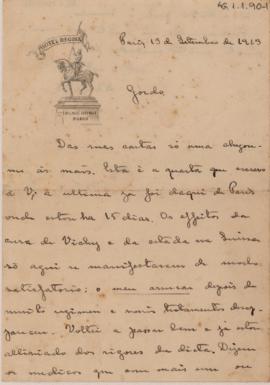 46.1.1.90-1
HOTEL REGINA
PARIS
Paris, 13 de Setembro de 1913
Gorda
Das suas cartas só uma chegou-
me ás mãos. Esta é a quarta que escrevo
a V; a ultima já foi daqui de Paris
onde estou ha 15 dias. Os effeitos da
cura de Vichy e da estada na Suissa
só aqui se manifestaram de modo
satisfatorio: o meu depois de
muito regimen e varios tratamentos desap-
pareceu. Voltei a passar bem e já estou
alliviado dos rigores da dieta. Dizem
os medicos que com mais um ou